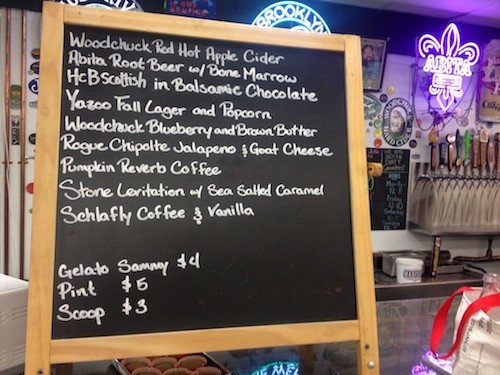 BROOKLYN
Woodchuck Red Hot Apple Cider
Abita Root Beer w/ Bone Marrow
HcB Scottish in Balsamic Chocolate
Yazoo Fall Lager and Popcorn
Woodchuck Blueberry and Brown Butter
Rogue Chipolte Jalapeno & Goat Cheese
Pumpkin Reverb Coffee
Stone Levitation w/ Sea Salted Caramel
Schlafly Coffee & Vanilla
Gelato Sammy $4
Pint $5
Scoop $3
ABITA
WOODCHUCK